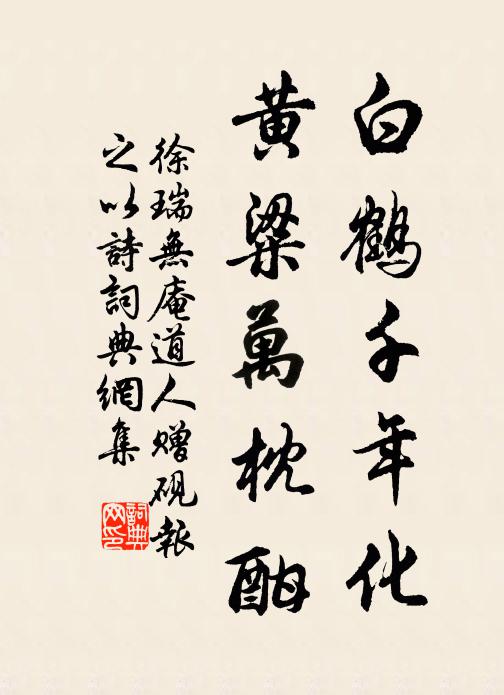 白鶴千年化
黄粱萬枕酣
徐瑞無庵道人贈硯報
之以詩詞典網集
詞典網印